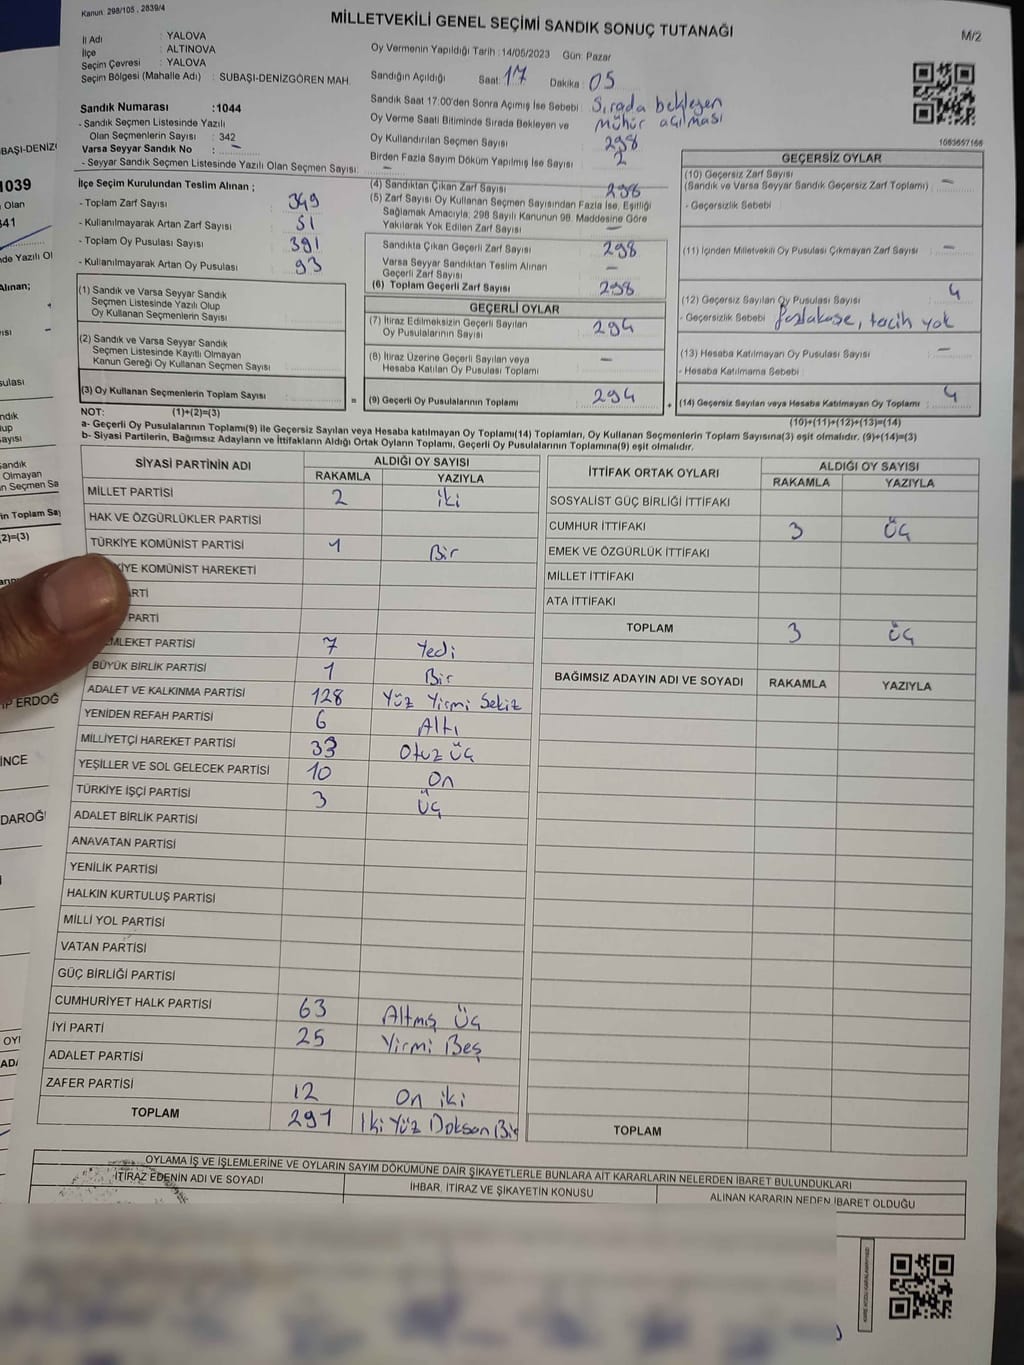 Kanun: 298/105 , 2839/4
MİLLETVEKİLİ GENEL SEÇİMİ SANDIK SONUÇ TUTANAĞI
M/2
İl Adı : YALOVA
İlçe : ALTINOVA
Seçim Çevresi : YALOVA
Seçim Bölgesi (Mahalle Adı) : SUBAŞI-DENİZGÖREN MAH.
Sandık Numarası :1044
- Sandık Seçmen Listesinde Yazılı
Olan Seçmenlerin Sayısı : 342
Varsa Seyyar Sandık No : -
- Seyyar Sandık Seçmen Listesinde Yazılı Olan Seçmen Sayısı: -
Oy Vermenin Yapıldığı Tarih :14/05/2023 Gün: Pazar
Sandığın Açıldığı Saat: 17 Dakika : 05
Sandık Saat 17:00'den Sonra Açımış İse Sebebi : Sırada bekleyen
Oy Verme Saati Bitiminde Sırada Bekleyen ve mühür açılması
Oy Kullandırılan Seçmen Sayısı 298
Birden Fazla Sayım Döküm Yapılmış İse Sayısı : 2
1083657166
İlçe Seçim Kurulundan Teslim Alınan ;
- Toplam Zarf Sayısı : 349
- Kullanılmayarak Artan Zarf Sayısı : 51
- Toplam Oy Pusulası Sayısı : 391
- Kullanılmayarak Artan Oy Pusulası : 93
(1) Sandık ve Varsa Seyyar Sandık
Seçmen Listesinde Yazılı Olup
Oy Kullanan Seçmenlerin Sayısı :
(2) Sandık ve Varsa Seyyar Sandık
Seçmen Listesinde Kayıtlı Olmayan
Kanun Gereği Oy Kullanan Seçmen Sayısı :
(3) Oy Kullanan Seçmenlerin Toplam Sayısı :
=
(4) Sandıktan Çıkan Zarf Sayısı : 298
(5) Zarf Sayısı Oy Kullanan Seçmen Sayısından Fazla İse, Eşitliği
Sağlamak Amacıyla; 298 Sayılı Kanunun 98. Maddesine Göre
Yakılarak Yok Edilen Zarf Sayısı : -
Sandıkta Çıkan Geçerli Zarf Sayısı : 298
Varsa Seyyar Sandıktan Teslim Alınan
Geçerli Zarf Sayısı : -
(6) Toplam Geçerli Zarf Sayısı : 298
GEÇERLİ OYLAR
(7) İtiraz Edilmeksizin Geçerli Sayılan
Oy Pusulalarının Sayısı : 294
(8) İtiraz Üzerine Geçerli Sayılan veya
Hesaba Katılan Oy Pusulası Toplamı : -
(9) Geçerli Oy Pusulalarının Toplamı : 294
+
GEÇERSİZ OYLAR
(10) Geçersiz Zarf Sayısı
(Sandık ve Varsa Seyyar Sandık Geçersiz Zarf Toplamı) : -
- Geçersizlik Sebebi :
(11) İçinden Milletvekili Oy Pusulası Çıkmayan Zarf Sayısı : -
(12) Geçersiz Sayılan Oy Pusulası Sayısı : 4
- Geçersizlik Sebebi : yok
(13) Hesaba Katılmayan Oy Pusulası Sayısı : -
- Hesaba Katılmama Sebebi :
(14) Geçersiz Sayılan veya Hesaba Katılmayan Oy Toplamı : 4
NOT: (1)+(2)=(3)
(10)+(11)+(12)+(13)=(14)
a- Geçerli Oy Pusulalarının Toplamı(9) ile Geçersiz Sayılan veya Hesaba katılmayan Oy Toplamı(14) Toplamları, Oy Kullanan Seçmenlerin Toplam Sayısına(3) eşit olmalıdır. (9)+(14)=(3)
b- Siyasi Partilerin, Bağımsız Adayların ve İttifakların Aldığı Ortak Oyların Toplamı, Geçerli Oy Pusulalarının Toplamına(9) eşit olmalıdır.
SİYASİ PARTİNİN ADI
ALDIĞI OY SAYISI
RAKAMLA YAZIYLA
MİLLET PARTİSİ 2 iki
HAK VE ÖZGÜRLÜKLER PARTİSİ
TÜRKİYE KOMÜNİST PARTİSİ 1 Bir
KİYE KOMÜNİST HAREKETİ
ARTİ
PARTİ
MLEKET PARTİSİ 7 Yedi
BÜYÜK BİRLİK PARTİSİ 1 Bir
ADALET VE KALKINMA PARTİSİ 128 Yüz Yirmi Sekiz
YENİDEN REFAH PARTİSİ 6 Altı
MİLLİYETÇİ HAREKET PARTİSİ 33 Otuz üç
YEŞİLLER VE SOL GELECEK PARTİSİ 10 On
TÜRKİYE İŞÇİ PARTİSİ 3 üç
ADALET BİRLİK PARTİSİ
ANAVATAN PARTİSİ
YENİLİK PARTİSİ
HALKIN KURTULUŞ PARTİSİ
MİLLİ YOL PARTİSİ
VATAN PARTİSİ
GÜÇ BİRLİĞİ PARTİSİ
CUMHURİYET HALK PARTİSİ 63 Altmış Üç
İYİ PARTİ 25 Yirmi Beş
ADALET PARTİSİ
ZAFER PARTİSİ 12 On iki
TOPLAM 291 İki Yüz Doksan Bir
İTTİFAK ORTAK OYLARI
ALDIĞI OY SAYISI
RAKAMLA YAZIYLA
SOSYALİST GÜÇ BİRLİĞİ İTTİFAKI
CUMHUR İTTİFAKI 3 üç
EMEK VE ÖZGÜRLÜK İTTİFAKI
MİLLET İTTİFAKI
ATA İTTİFAKI
TOPLAM 3 üç
BAĞIMSIZ ADAYIN ADI VE SOYADI RAKAMLA YAZIYLA
TOPLAM
OYLAMA İŞ VE İŞLEMLERİNE VE OYLARIN SAYIM DÖKÜMÜNE DAİR ŞİKAYETLERLE BUNLARA AİT KARARLARIN NELERDEN İBARET BULUNDUKLARI
İTİRAZ EDENİN ADI VE SOYADI İHBAR, İTİRAZ VE ŞİKAYETİN KONUSU ALINAN KARARIN NEDEN İBARET OLDUĞU
BAŞI-DENİZ
1039
Olan
341
nde Yazılı Ol
Alınan;
Olmayan
n Seçmen Sa
in Toplam Say
2)=(3)
IP ERDOĞ
İNCE
DAROĞ